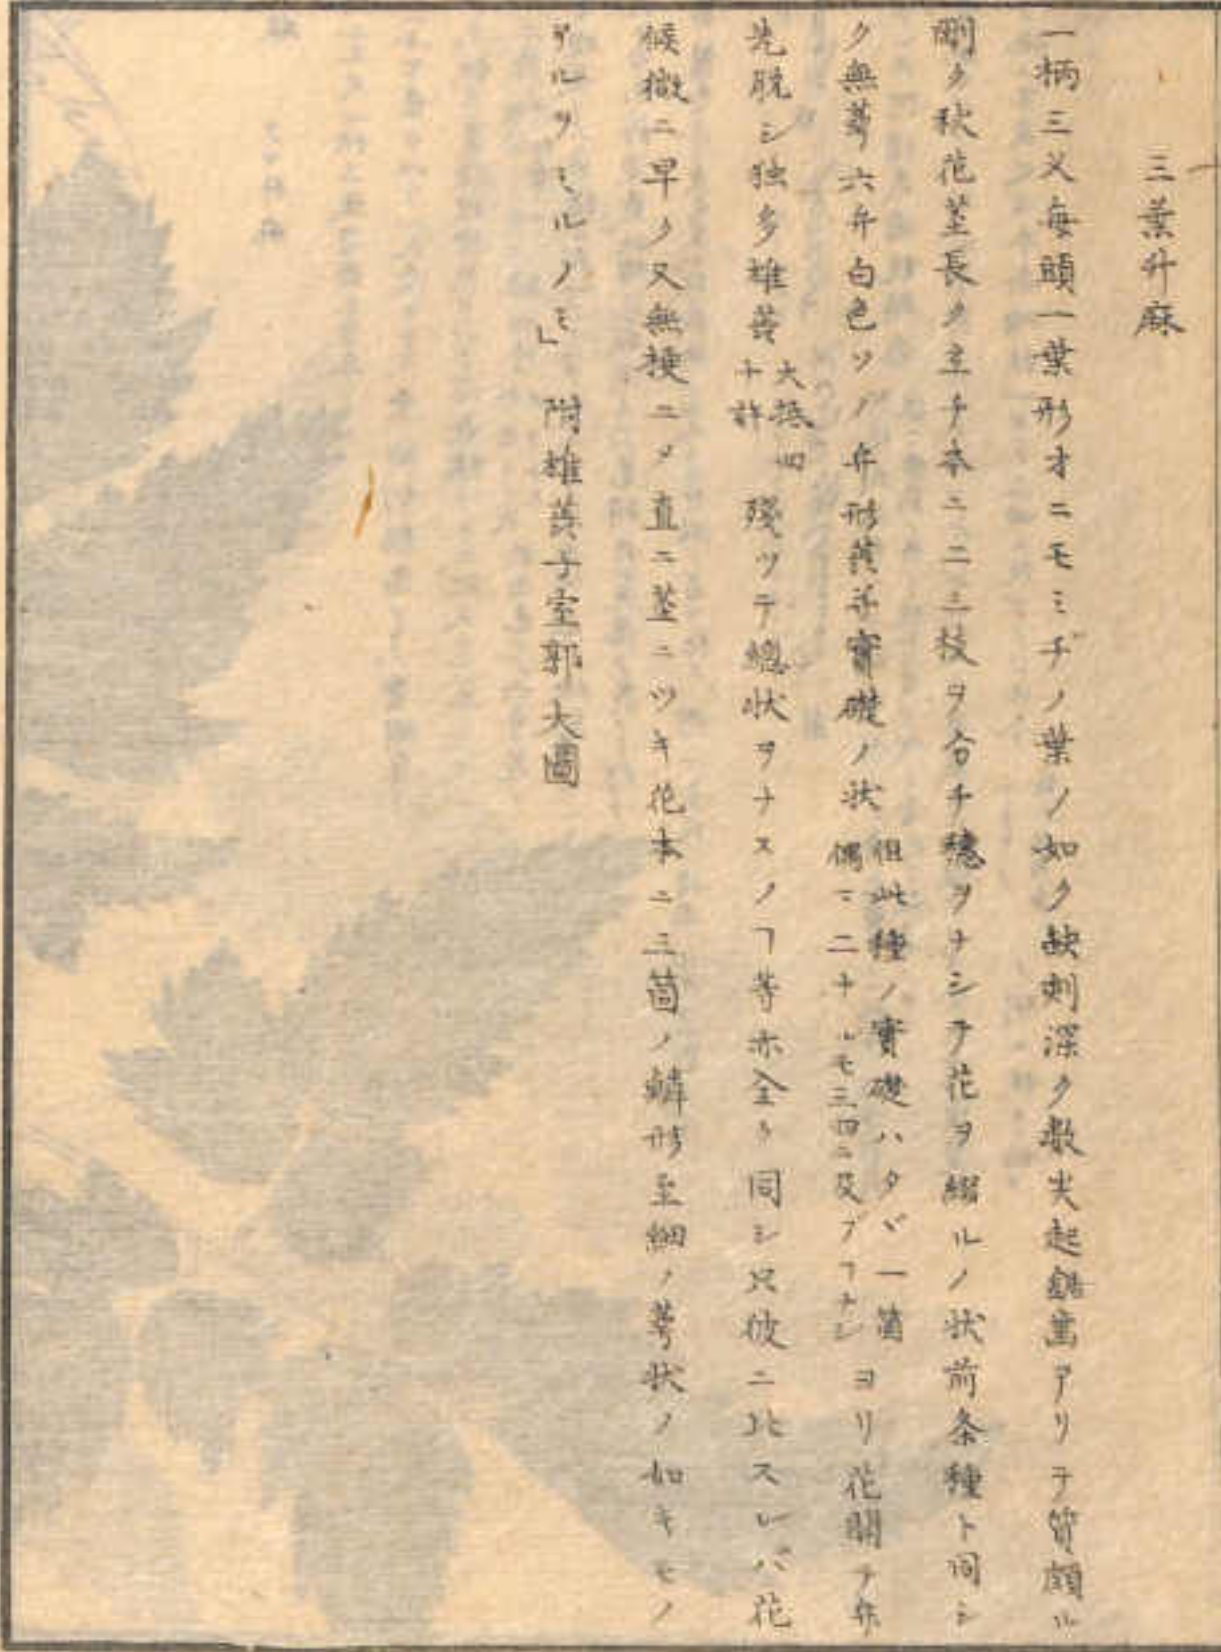 三葉升麻
一柄三叉每頭一葉形オニモミヂノ葉ノ如ク缺刻深ク數尖起鋸齒アリテ質頗ル
剛ク秋花莖長ク立チ本ニ二三枝ヲ分チ穗ヲナシテ花ヲ綴ルノ状前条種ト同シ
ク無萼六弁白色ソノ弁形蕋并實礎ノ状
但此種ノ實礎ハタヾ一箇
偶々二ナルモ三四ニ及ブヿナシ
ヨリ花開テ弁
先脱シ独多雄蕋
大抵四
十許
殘ツテ總状ヲナスノヿ等亦全ク同シ只彼ニ比スレバ花
候微ニ早ク又無梗ニメ直ニ莖ニツキ花本ニ三箇ノ鱗形至細ノ萼状ノ如キモノ
アルヲミルノミ」 附雄蕋子室郭大圖